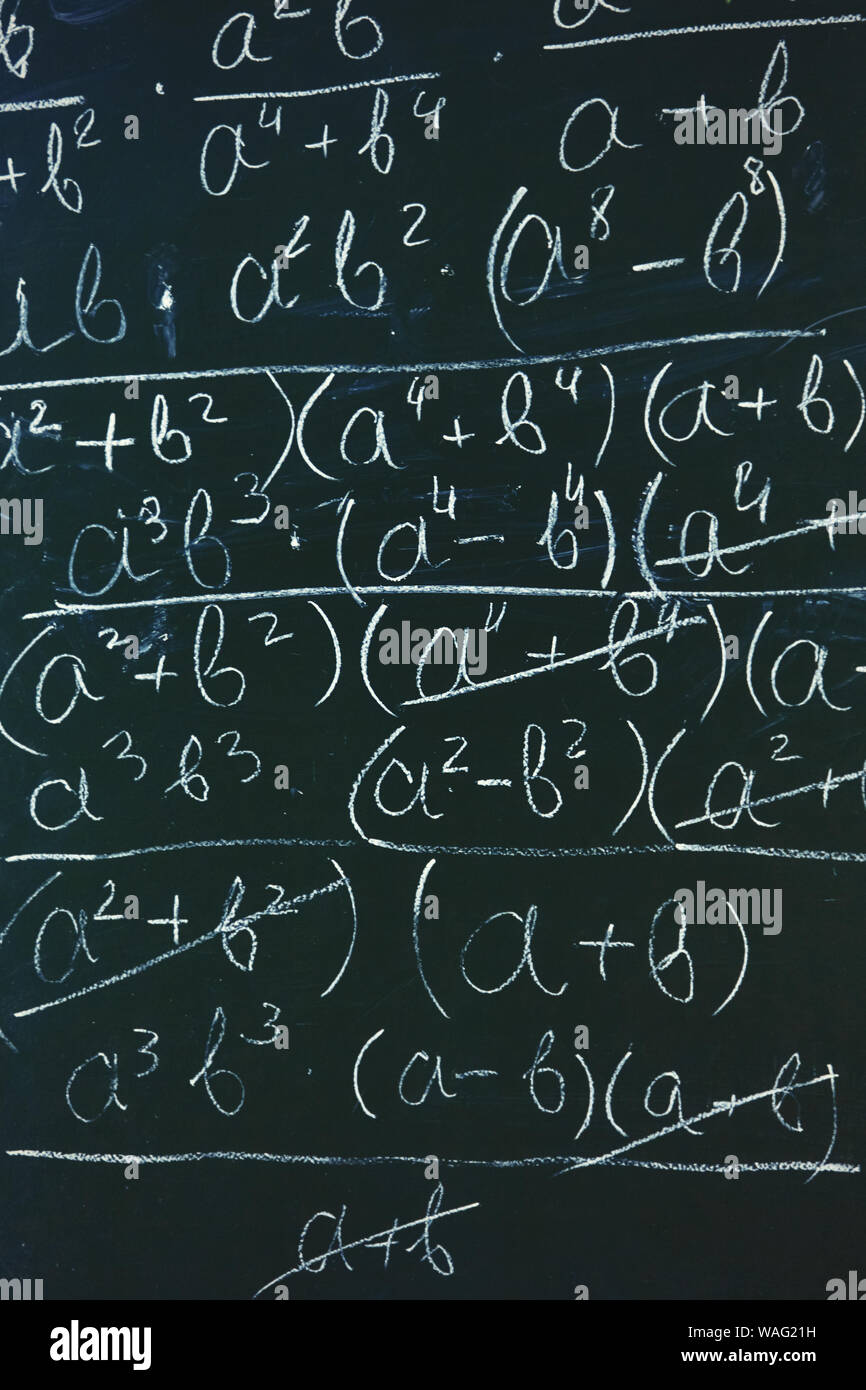 b · a²b · a
+ b² a⁴ + b⁴ a + b
b · a²b² · (a⁸ - b⁸)
a² + b²)(a⁴ + b⁴)(a + b)
a³b³ · (a⁴ - b⁴)(a⁴ +
(a² + b²)(a⁴ + b⁴)(a -
a³b³ · (a² - b²)(a² +
(a² + b²)(a + b)
a³b³ · (a - b)(a + b)
a + b
alamy
Image ID: WAG21H
www.alamy.com